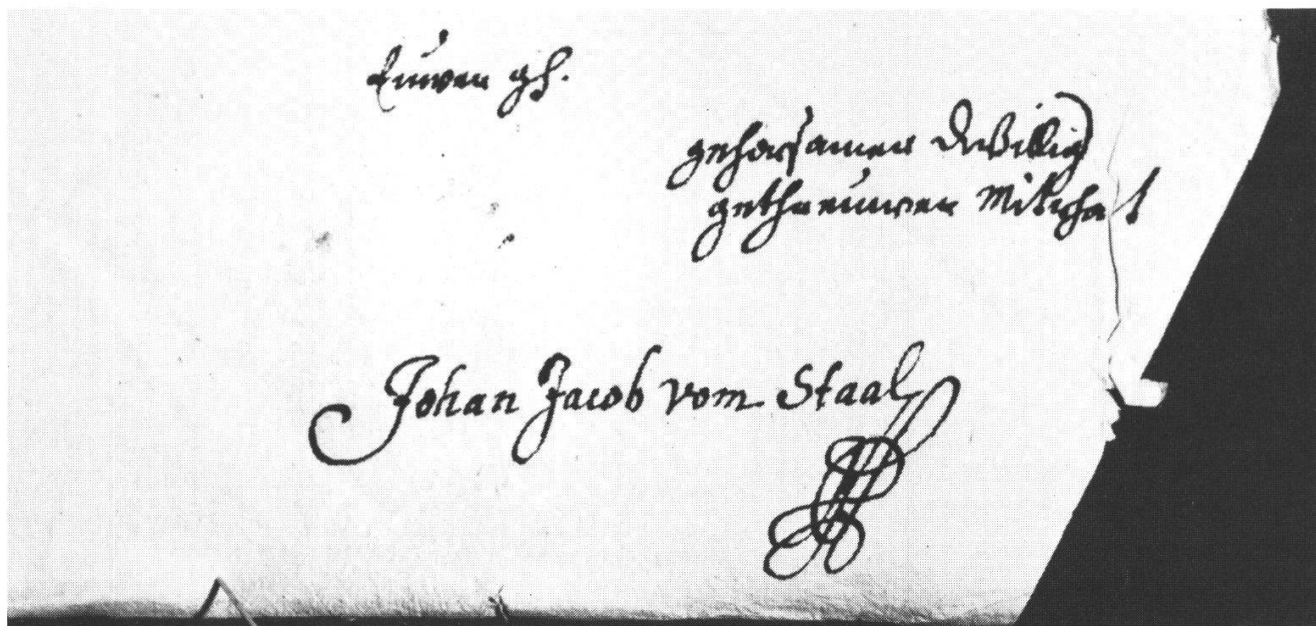 Euwer gh.
gehorsamer
getreuwer Mitrhat
Johan Jacob vom Staal